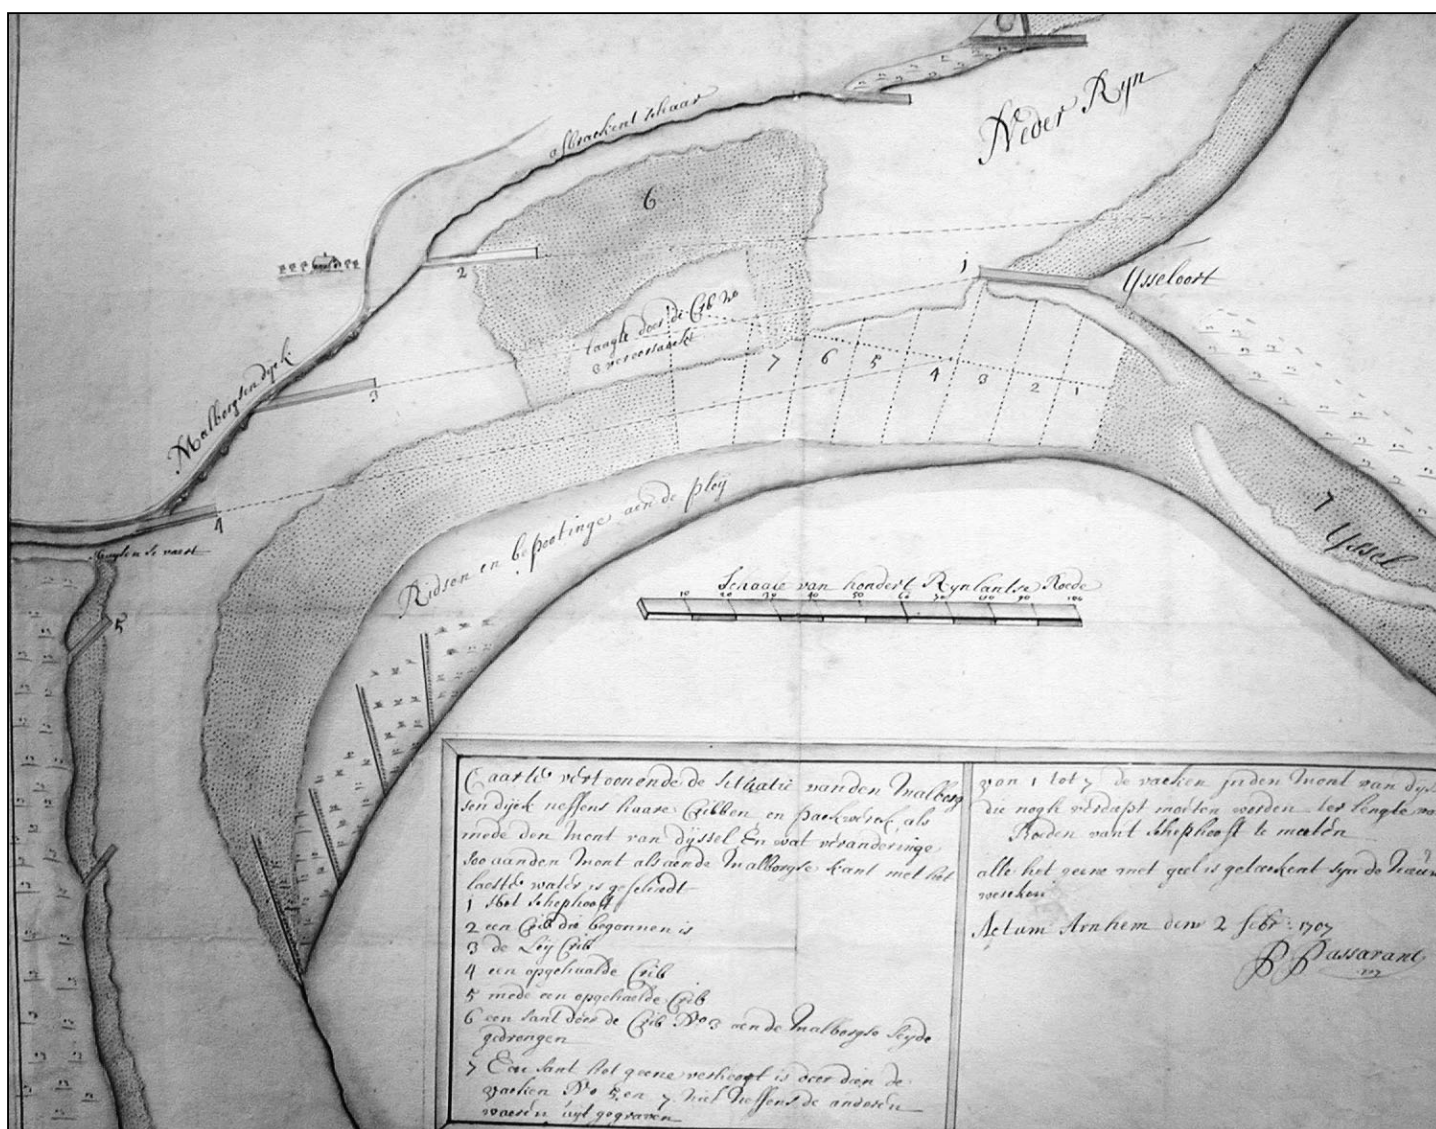 afbraekent schaar
Neder Ryn
6
2
1
Ysseloort
langte door de Crib No
3 veroorsaackt
Malborgsen dyck
3
7 6 5 4 3 2 1
4
vaert
Ridsen en bepootinge aen de pley
7
Yssel
5
Schaale van hondert Rynlantse Roede
10 20 30 40 50 60 70 80 90 100
Caarte vertoonende de situatie vanden Malborg
sen dyck neffens haare Cribben en packwerck, als
mede den Mont van dyssel En wat veranderinge
soo aanden Mont als aende Malborgse kant met het
laeste water is geschiedt
1 Het Schephooft
2 een Crib die begonnen is
3 de Leij Crib
4 een opgehaalde Crib
5 mede een opgehaelde Crib
6 een sant door de Crib No 3 aen de Malborgse seyde
gedrongen
7 Een sant het geene verhoogt is door dien de
vaeken No 5 en 7 niet neffens de anderen
waeren uyt gegraven
van 1 tot 7 de vaeken in den Mont van dyss
die nogh verdapt moeten werden ter lingte va
Roeden vant Schephooft te meeten
alle het geene met geel is geteekent syn de nieuw
wercken
Actum Arnhem den 2 febr: 1707
P Passavant